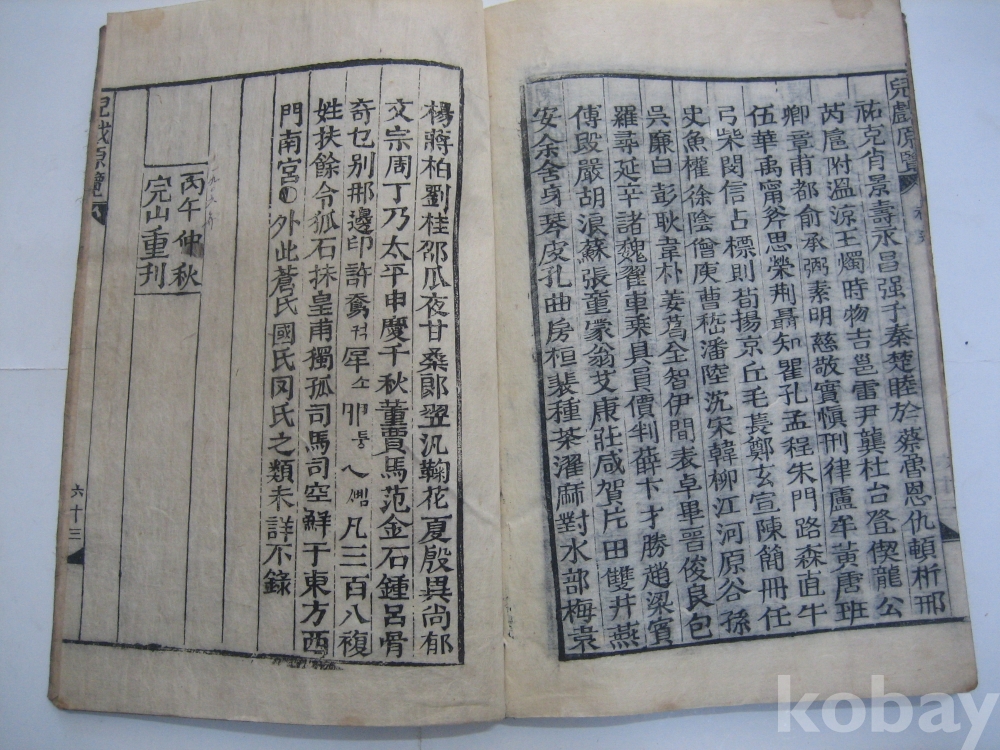 兒戲原覽
祐克肖景壽永昌强子秦楚睦於蔡魯恩仇頓析邢
芮扈附溫涼王燭時物吉邕雷尹龔杜台登偰龍公
卿章甫都俞承弼素明慈敬實愼刑律盧牟黃唐班
伍華禹甯斧思榮荆聶知瞿孔孟程朱門路森直牛
弓柴閔信占標則荀揚京丘毛萇鄭玄宣陳簡冊任
史魚權徐陰僧庾曹嵇潘陸沈宋韓柳江河原谷孫
吳廉白彭耿韋朴姜葛全智伊間表卓畢晋俊良包
羅尋延辛諸魏翟重乘具員價判薛卞才勝趙梁賓
傅殷嚴胡浪蘇張童蒙翁艾康莊咸賀片田雙井燕
安余舍身琴皮孔曲房桓裴種茶濯麻對水部梅袁
楊蔣柏劉桂邵瓜夜甘桑郞翌汎鞠花夏殷異尚郁
文宗周丁乃太平申慶千秋董賈馬范金石鍾呂骨
奇乜别那邊印許奪乭凡三百八複
姓扶餘令狐石抹皇甫獨孤司馬司空鮮于東方西
門南宮外此蒼氏國氏囝氏之類未詳不錄
丙午仲秋
完山重刊
六十三
kobay